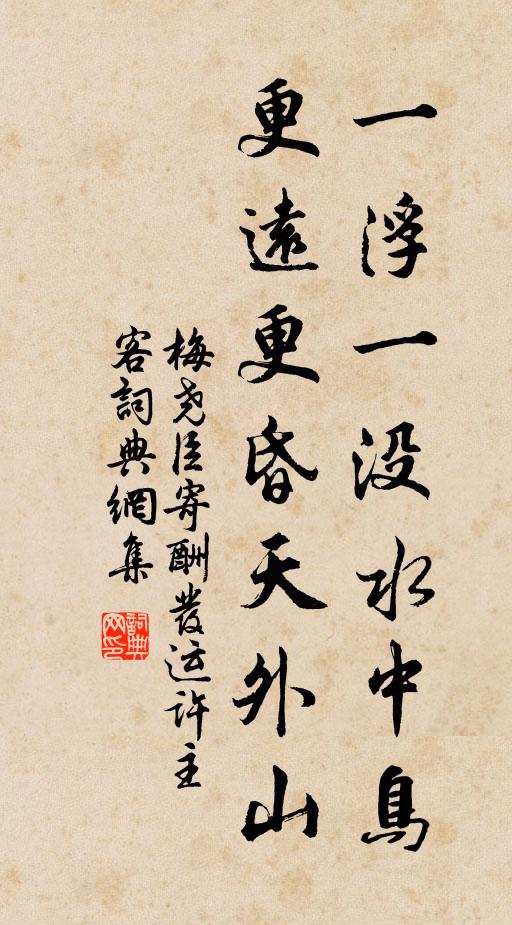 一浮一没水中鳥
更遠更昏天外山
梅堯臣寄酬發運許主
客詞典網集
詞典網印